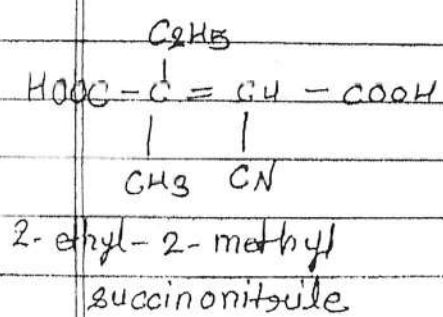 C2H5
HOOC - C = CH - COOH
CH3 CN
2-ethyl-2-methyl
succinonitrile